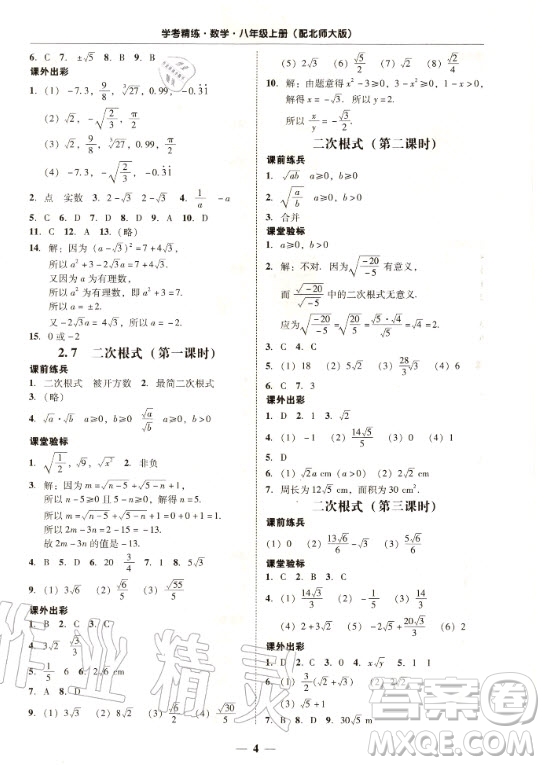 学考精练·数学·八年级上册（配北师大版）
6. C 7. ±√5 8. C
课外出彩
1. (1) -7.3, 9/8, ³√27, 0.99, -0.3̇1̇
(2) √2, -√(2/3), π/2
(3) √2, 9/8, ³√27, 0.99, π/2
(4) -7.3, -√(2/3), -0.3̇1̇
2. 点 实数 3. 2-√3 2-√3 4. 1/a -a
5. C 6. D 7. D 8. C 9. D 10. D
11. C 12. A 13. (略)
14. 解：因为 (a-√3)²=7+4√3,
所以 a²+3-2√3a=7+4√3.
又因为 a 为有理数,
所以 a² 为有理数，所以 a²+3=7,
所以 a=±2.
又 -2√3a=4√3, 所以 a=-2.
15. 0 或 -2
2.7 二次根式（第一课时）
课前练兵
1. 二次根式 被开方数 2. 最简二次根式
3. (略)
4. √a·√b a≥0, b≥0 √a/√b a≥0, b>0
课堂验标
1. √(1/2), √9, √x² 2. 非负
3. 解：因为 m=√(n-5)+√(5-n)+2,
所以 n-5≥0 且 5-n≥0, 所以 n=5,
所以 m=√(n-5)+√(5-n)+2=2.
所以 3m-2n=2-15=-13.
故 3m-2n 的值是 -13.
4. B 5. D 6. 130 7. 4 8. 5√3
9. (1) 3√6 (2) √3/5 (3) √55/5
课外出彩
1. B 2. C
4. 3√2 √3/3
5. 1/5 6 6. 2√7 7. 5
8. B
9. (1) 8√3 (4) √30/5
4
(5) 2√3 (6) 5√3/3
10. 解：由题意得 x²-3≥0, 3-x²≥0,
解得 x=±√3. 所以 y=2.
所以 x/y=±√3/2.
二次根式（第二课时）
课前练兵
1. √ab a≥0, b≥0
2. √(a/b) a≥0, b>0
3. 合并
课堂验标
1. a≥0, b>0
2. 解：不对. 因为 √(-20/-5) 有意义,
而 √-20/√-5 中的二次根式无意义.
应为 √(-20/-5)=√(20/5)=√5·√4/√5=√4=2.
3. C 4. C 5. (1) 18 (2) √3 (3) 28/3√3
6. C 7. 3
课外出彩
1. D 2. (1) 1
4. (1) -1 (2) 14√5/5 (3) √5
5. D
6. (1) √2a cm (a>0)
7. 周长为 12√5 cm, 面积为 30 cm².
二次根式（第三课时）
课前练兵
(1) 0 (2) 13√6/6 (3) √6/6-√3
课堂验标
1. C 2. C 3. A
4. (1) 14√3/3 (3) -1/5 (4) √5/5
(5) 4√2 (6) 2+2√3
课外出彩
1. D 2. D 4. D 5. x√y
6. (1) -3/2√2 (2) 6
7. B 8. D 9. D 10. 30√5 m